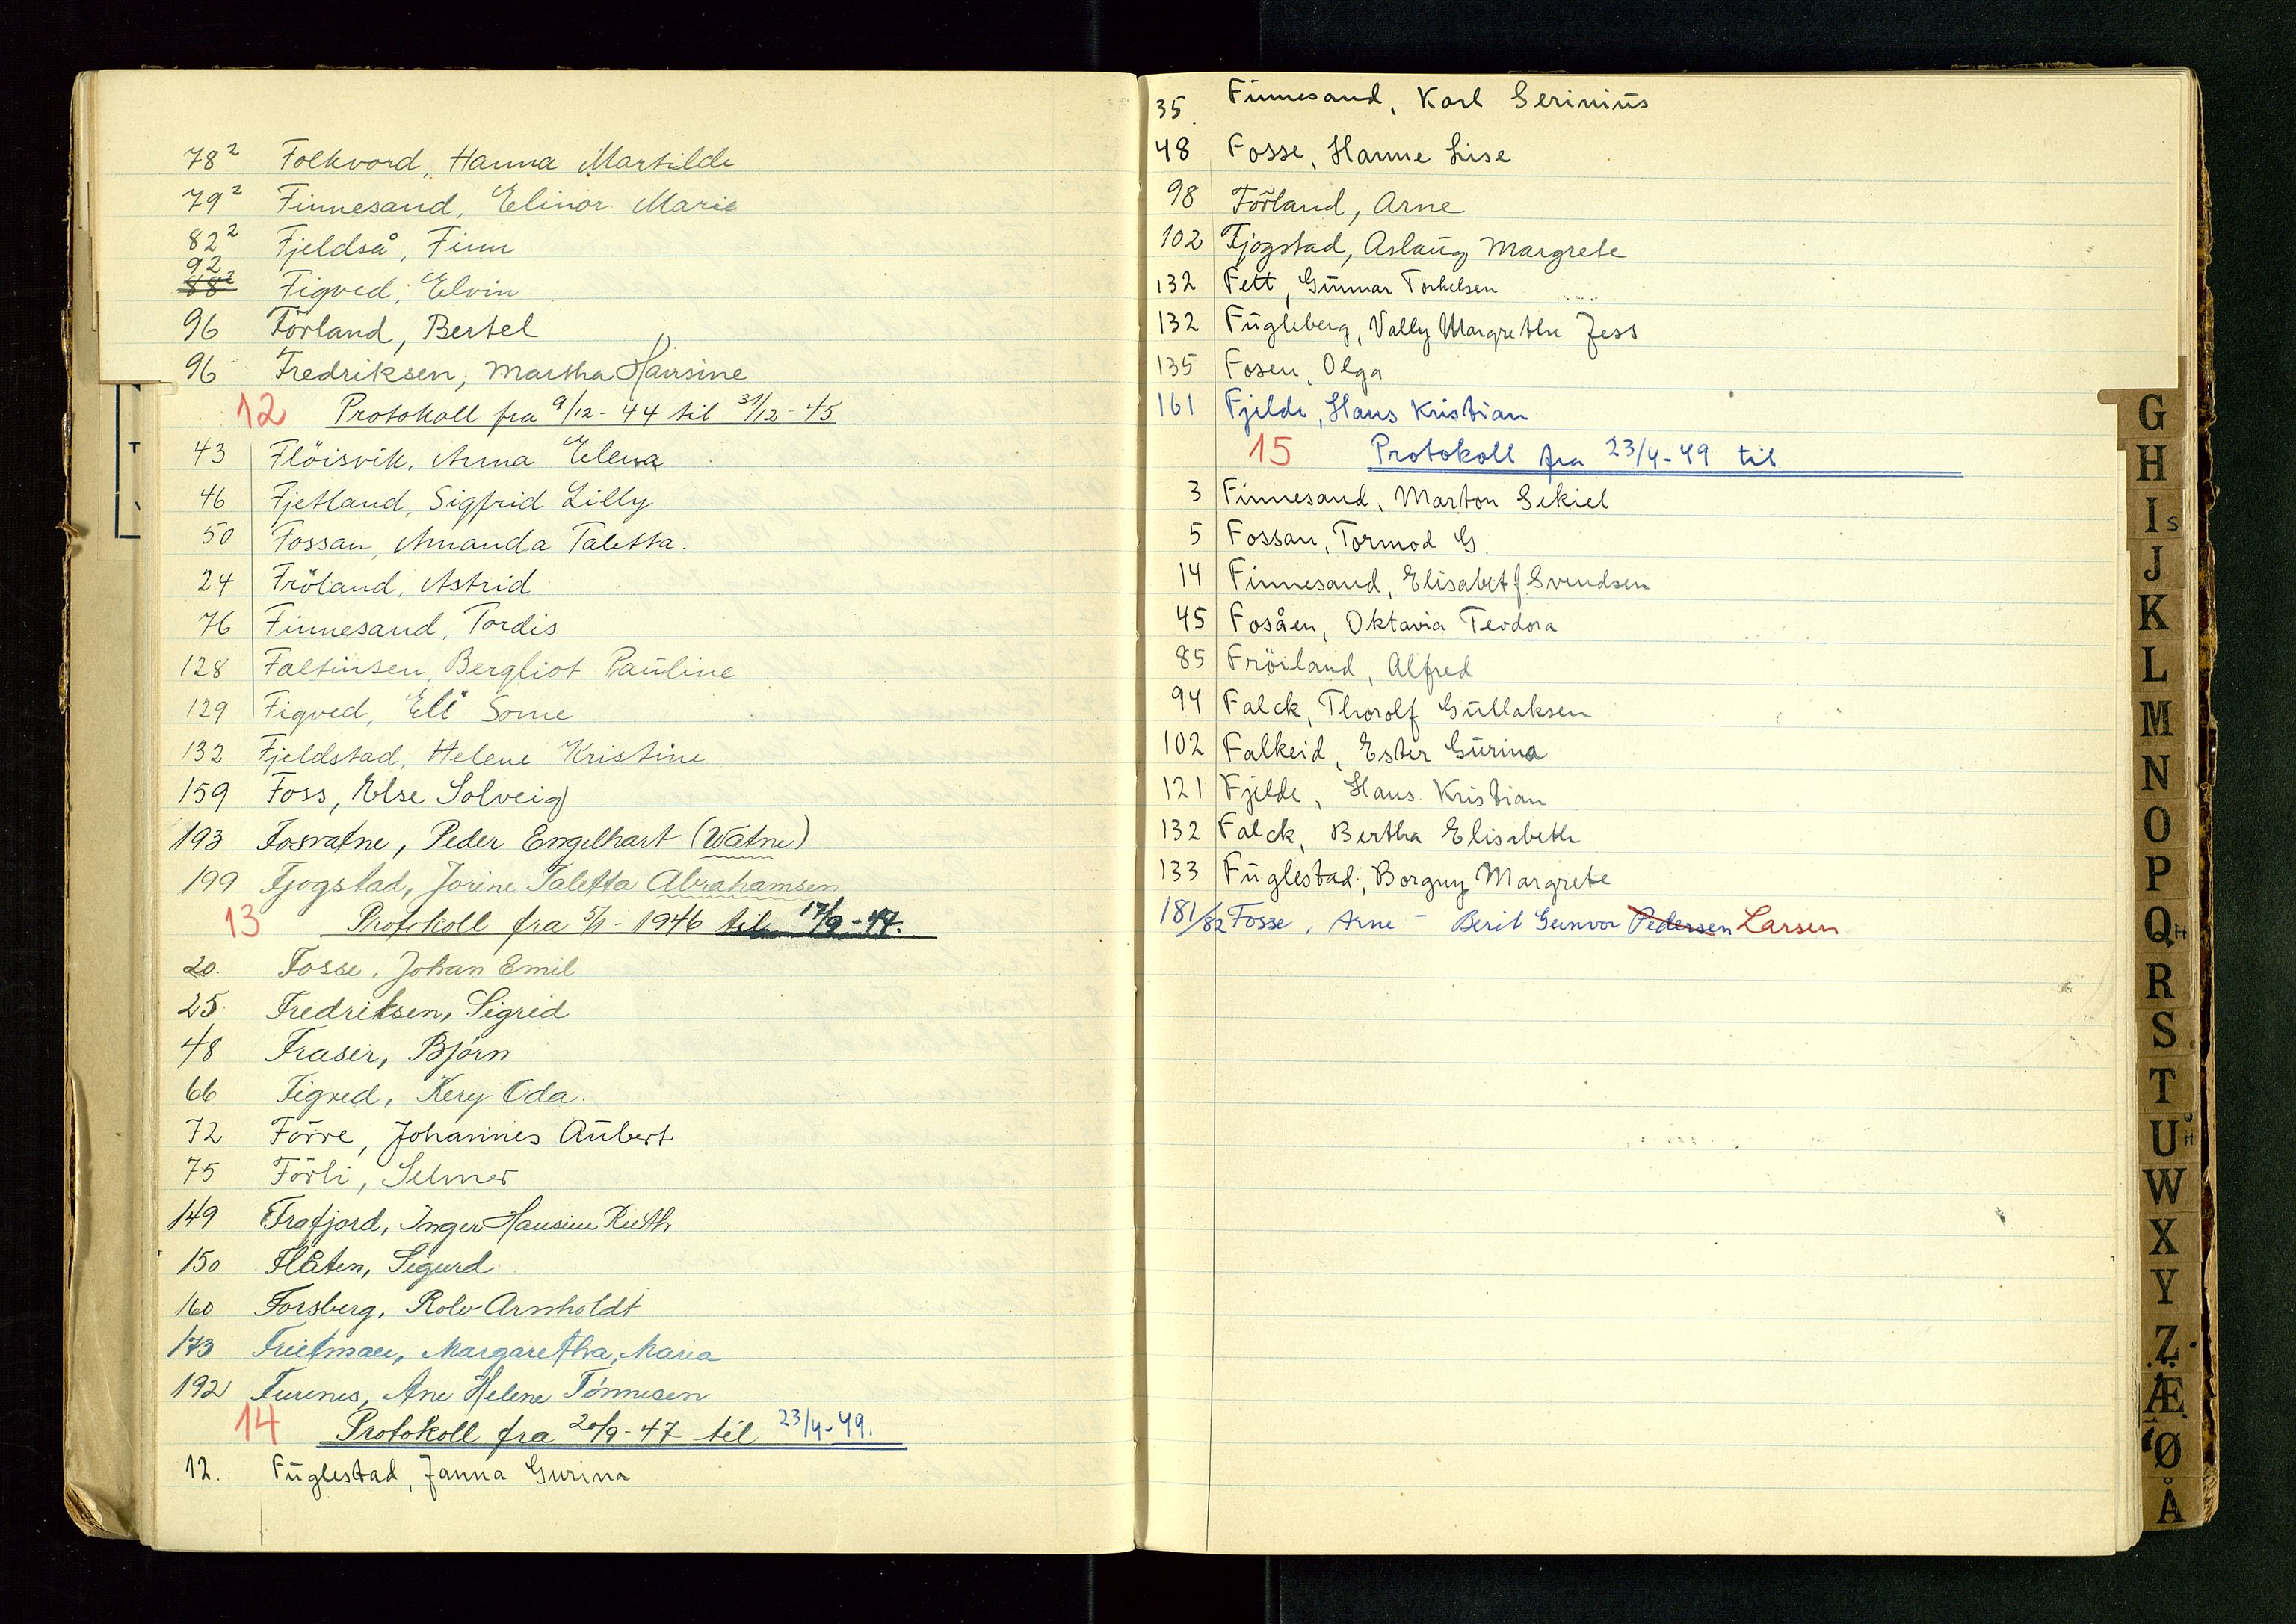 78² Folkvord, Hanna Martilde
79² Finnesand, Elinor Marie
82² Fjeldså, Finn
92
88² Figved, Elvin
96 Förland, Bertel
96 Fredriksen, Martha Hansine
12 Protokoll fra 9/12-44 til 31/12-45
43 Flöisvik, Anna Elena
46 Fjetland, Sigfrid Lilly
50 Fossan, Amanda Taletta.
24 Fröland, Astrid
76 Finnesand, Tordis
128 Faltinsen, Bergliot Pauline
129 Figved, Eli Some
132 Fjeldstad, Helene Kristine
159 Foss, Else Solveig
193 Fosvatne, Peder Engelhart (Watne)
199 Fjogstad, Jorine Taletta Abrahamsen
13 Protokoll fra 5/1-1946 til 17/9-47.
20. Fosse, Johan Emil
25. Fredriksen, Sigrid
48 Fraser, Björn
66 Figved, Kery Oda.
72 Förre, Johannes Aubert
75 Förli, Selmer
149 Frafjord, Inger Hansine Ruth
150 Flåten, Sigurd
160 Forsberg, Rolv Arnholdt
173 Margaretha, Maria
192 Furenes, Ane Helene Tönnesen
14 Protokoll fra 20/9-47 til 23/4-49.
12. Fuglestad, Janna Gurina
35. Finnesand, Karl Serinius
48 Fosse, Hanne Lise
98 Förland, Arne
102 Fjogstad, Aslaug Margrete
132 Fett, Gunnar Torkelsen
132 Fugleberg, Vally Margrethe Jess
135 Fosen, Olga
161 Fjelde, Hans Kristian
15 Protokoll fra 23/4-49 til
3 Finnesand, Marton Sekiel
5 Fossan, Tormod G.
14 Finnesand, Elisabet f. Svendsen
45 Fosåen, Oktavia Teodora
85 Fröiland, Alfred
94 Falck, Thorolf Gullaksen
102 Falkeid, Ester Gurina
121 Fjelde, Hans Kristian
132 Falck, Bertha Elisabeth
133 Fuglestad, Borgny Margrete
181/82 Fosse, Arne - Berit Gunvor Pedersen Larsen
G
H
Is
J
K
L
M
N
O
P
QH
R
S
T
U
W
X
Y
Z
Æ
Ø
Å